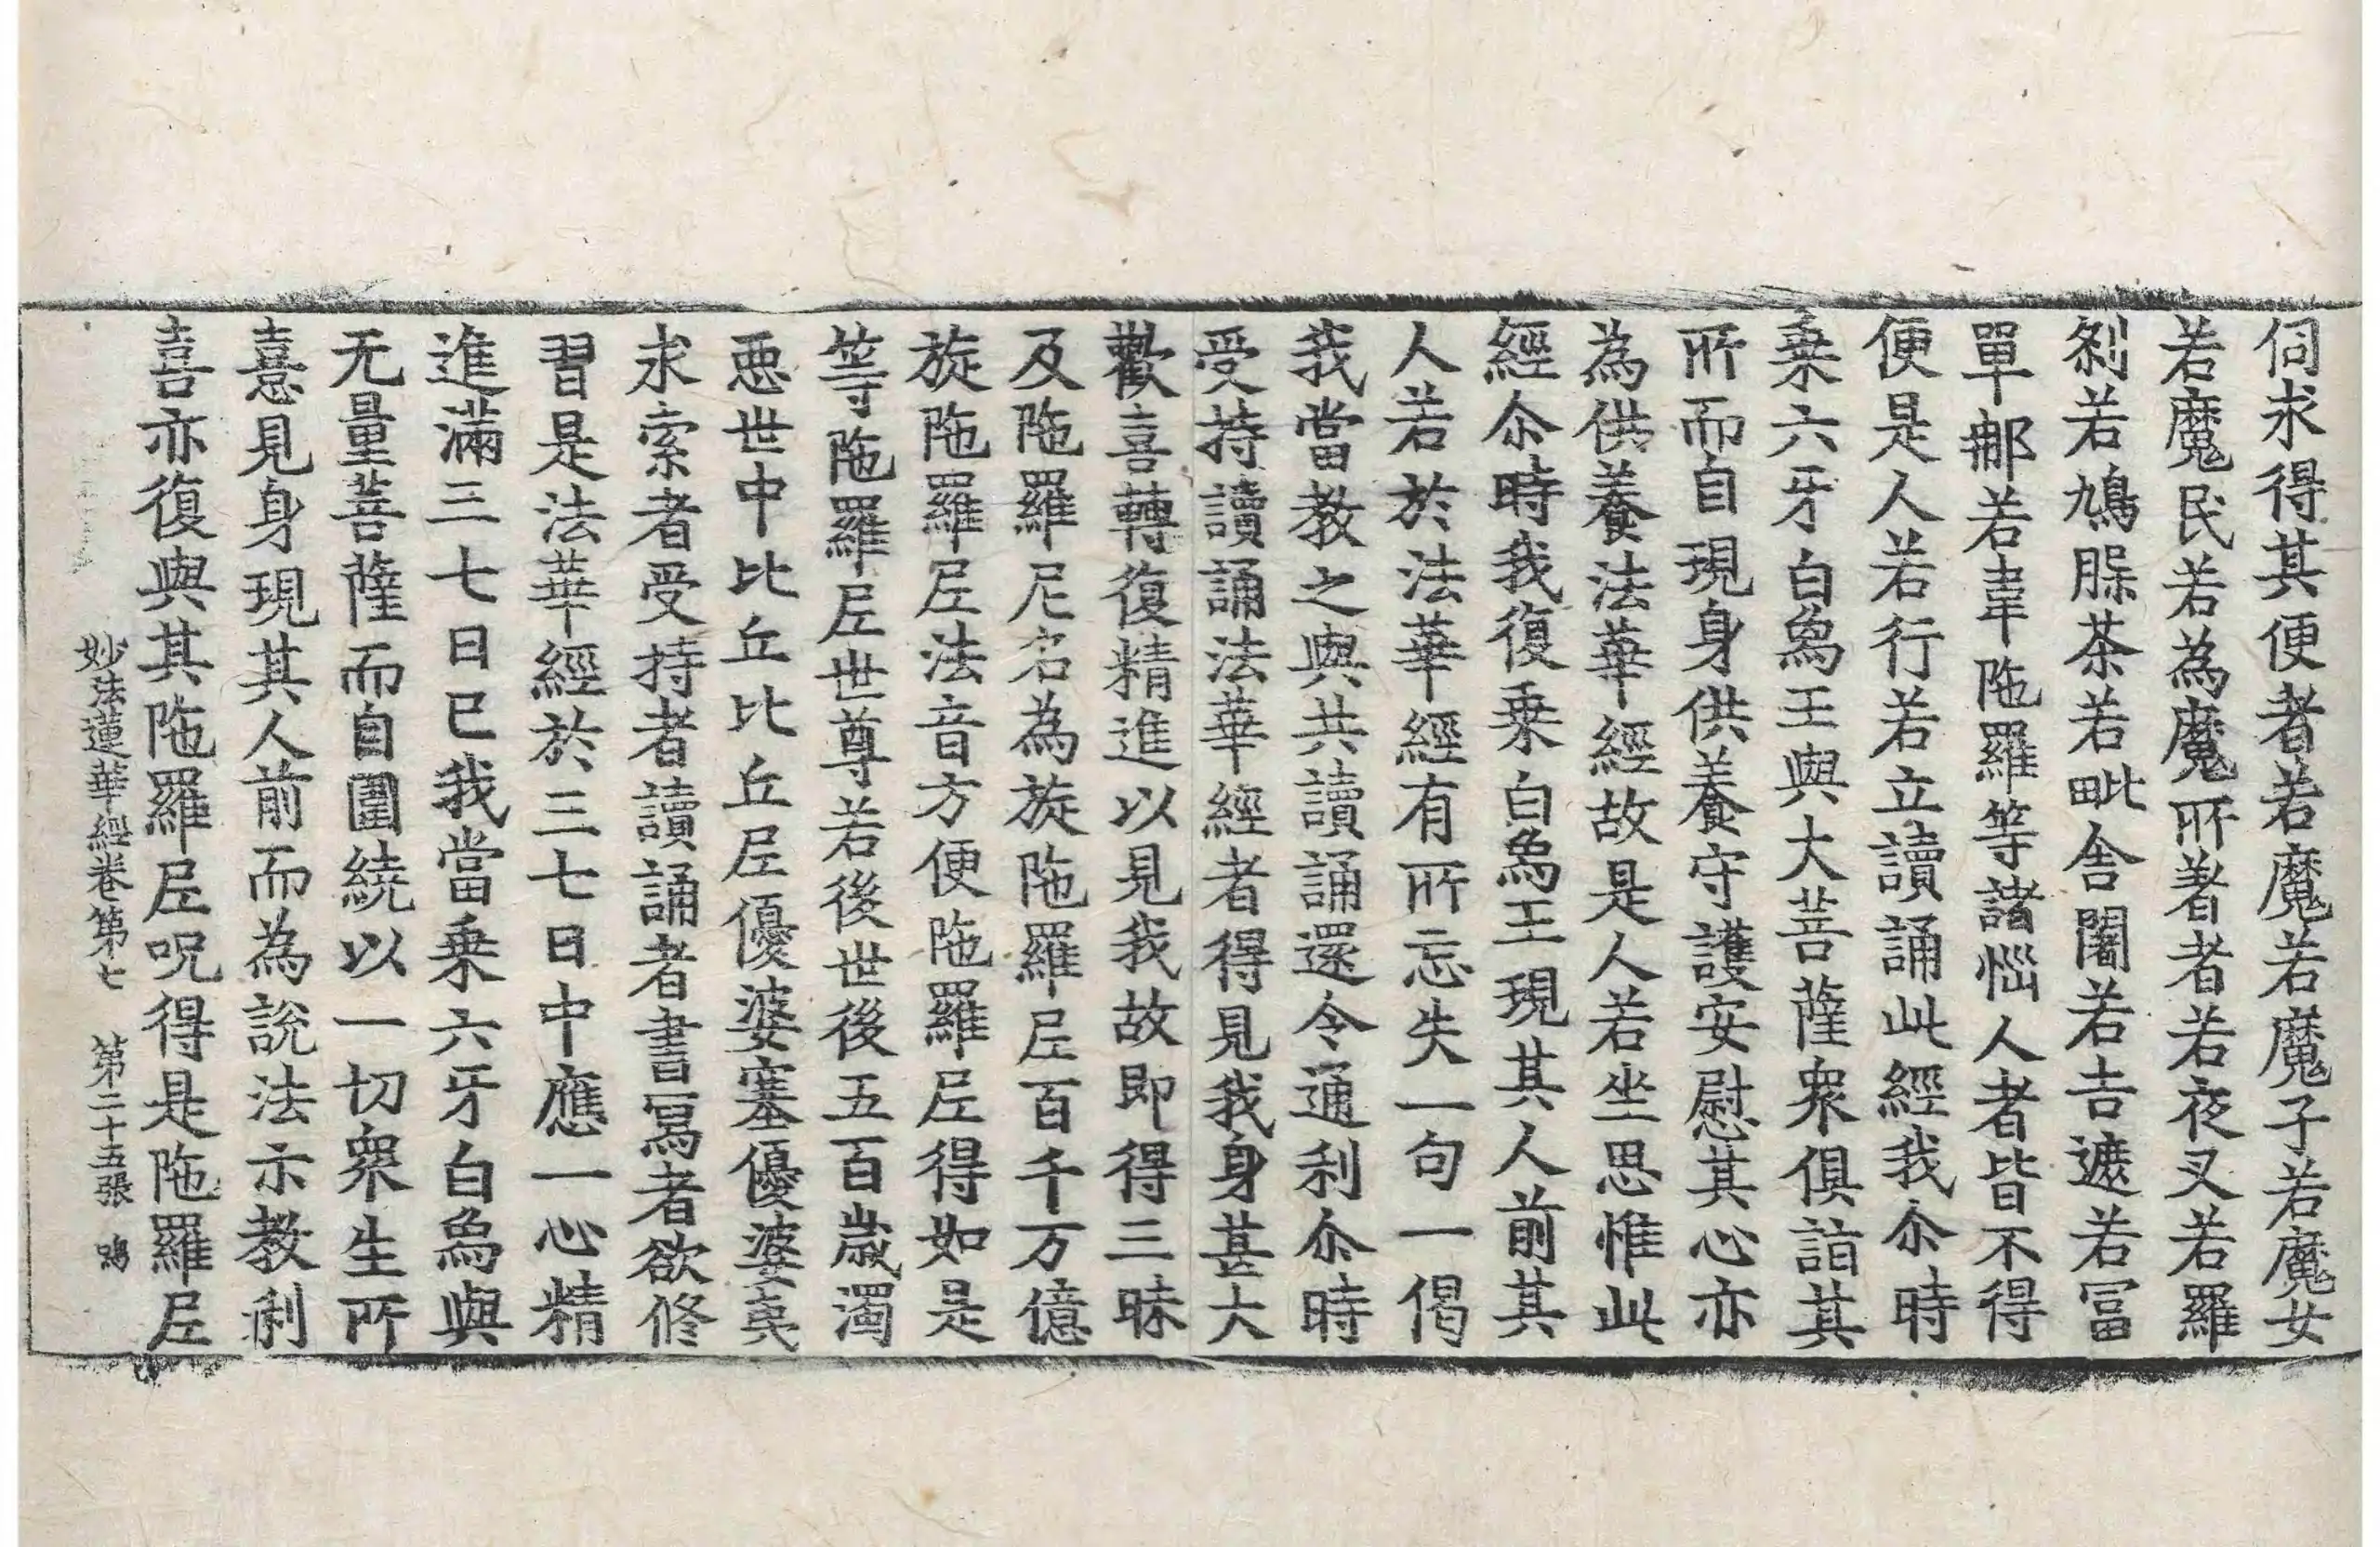 伺求得其便者若魔若魔子若魔女
若魔民若為魔所著者若夜叉若羅
刹若鳩膝茶若毗舍闍若吉遮若冨
單那若韋陁羅等諸惱人者皆不得
便是人若行若立讀誦此經我尒時
乗六牙白象王與大菩薩衆俱詣其
所而自現身供養守護安慰其心亦
為供養法華經故是人若坐思惟此
經尒時我復乗白象王現其人前其
人若於法華經有所忘失一句一偈
我當教之與共讀誦還令通利尒時
受持讀誦法華經者得見我身甚大
歡喜轉復精進以見我故即得三昧
及陁羅尼名為旋陁羅尼百千万億
旋陁羅尼法音方便陁羅尼得如是
等陁羅尼世尊若後世後五百歲濁
惡世中比丘比丘尼優婆塞優婆夷
求索者受持者讀誦者書冩者欲修
習是法華經於三七日中應一心精
進滿三七日已我當乗六牙白象與
无量菩薩而自圍繞以一切衆生所
憙見身現其人前而為說法示教利
喜亦復與其陁羅尼呪得是陁羅尼
妙法蓮華經卷第七 第二十五張